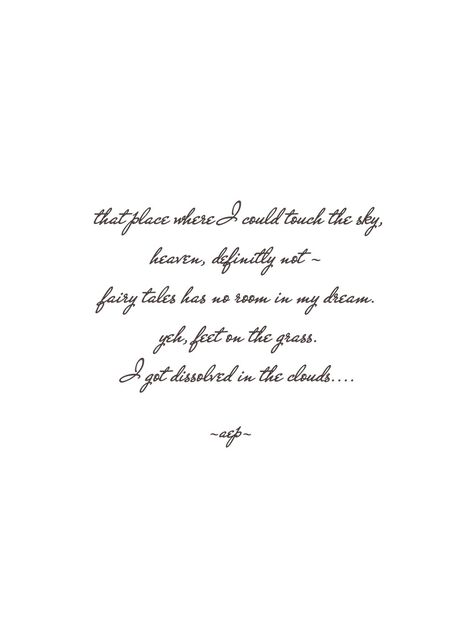 that place where I could touch the sky,
heaven, definitly not ~
fairy tales has no room in my dream.
yeh, feet on the grass.
I got dissolved in the clouds....
~aep~